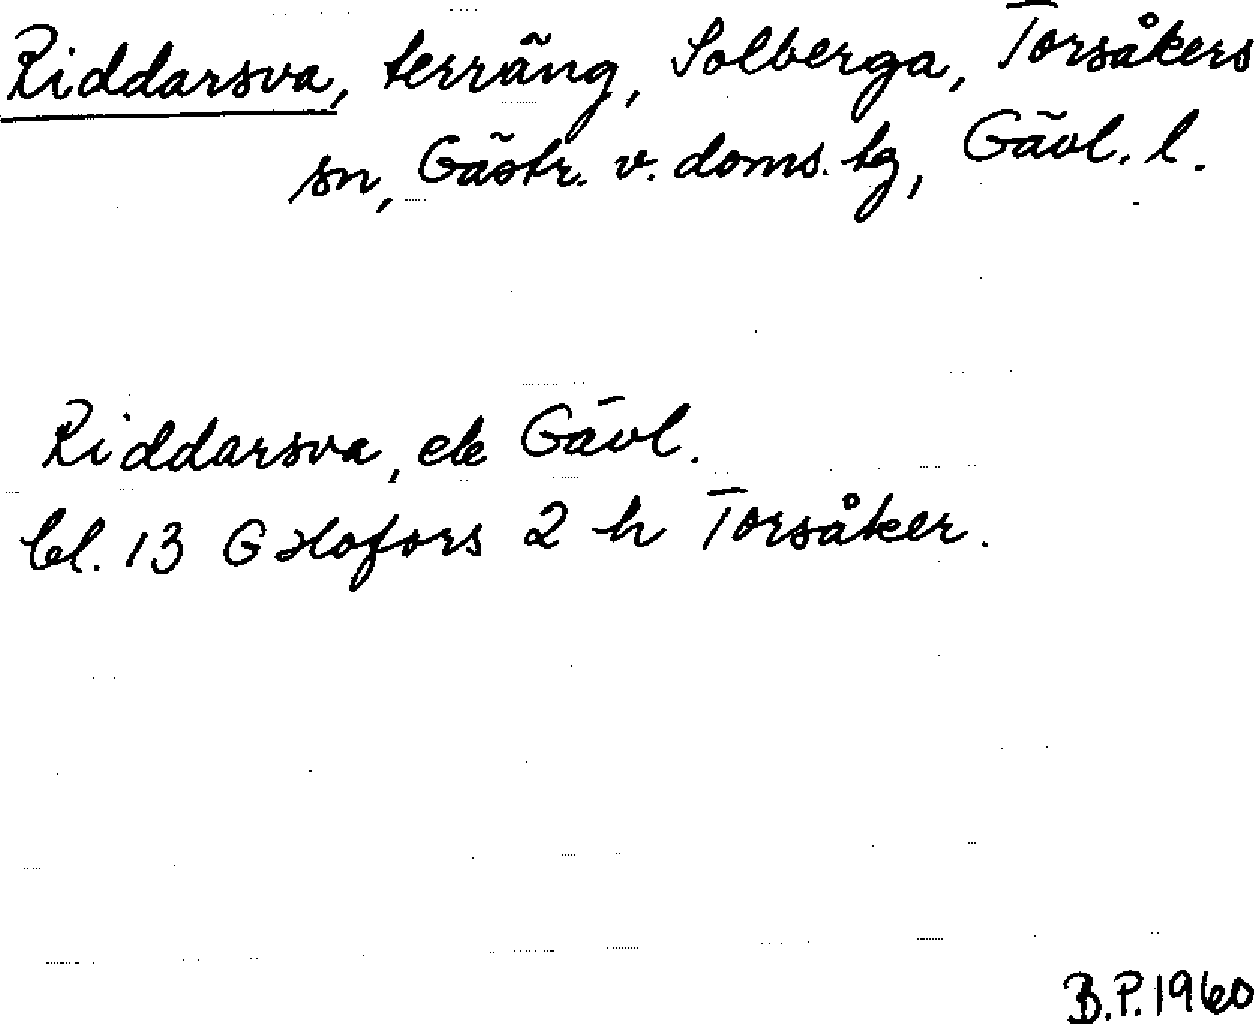 Riddarsva, terräng, Solberga, Torsåkers
sn, Gästr. v. doms. tg, Gävl. l.
Riddarsva, ek Gävl.
bl. 13 G Hofors 2 h Torsåker.
B.P. 1960